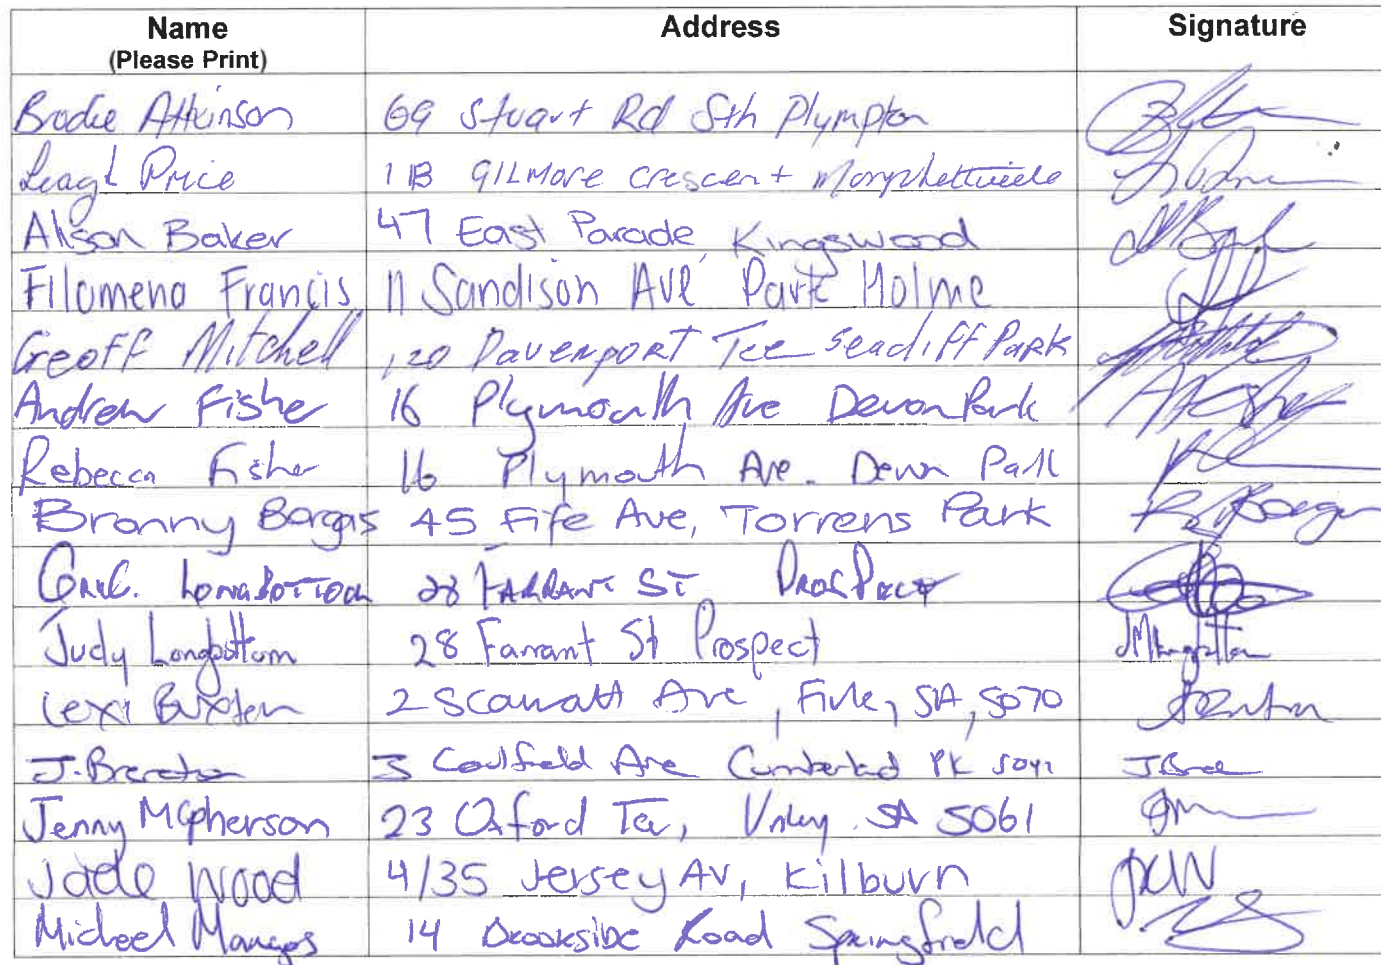 Name Address Signature
(Please Print)
Brodie Atkinson 69 Stuart Rd Sth Plympton
Leagh Price 1B GILMORE Crescent Morphettville
Alison Baker 47 East Parade Kingswood
Filomena Francis 11 Sandison Ave Park Holme
Geoff Mitchell 120 Davenport Tce Seacliff Park
Andrew Fisher 16 Plymouth Ave Devon Park
Rebecca Fisher 16 Plymouth Ave. Devon Park
Bronny Borgas 45 Fife Ave, Torrens Park
Longbottom 28 FARRANT ST Prospect
Judy Longbottom 28 Farrant St Prospect
Lexi Buxton 2 Ave, Firle, SA, 5070
J. Brereton 3 Caulfield Ave Cumberland PK 5041
Jenny McPherson 23 Oxford Ter, Unley SA 5061
Jade Wood 4/35 Jersey Av, Kilburn JKW
Michael Manges 14 Brookside Road Springfield